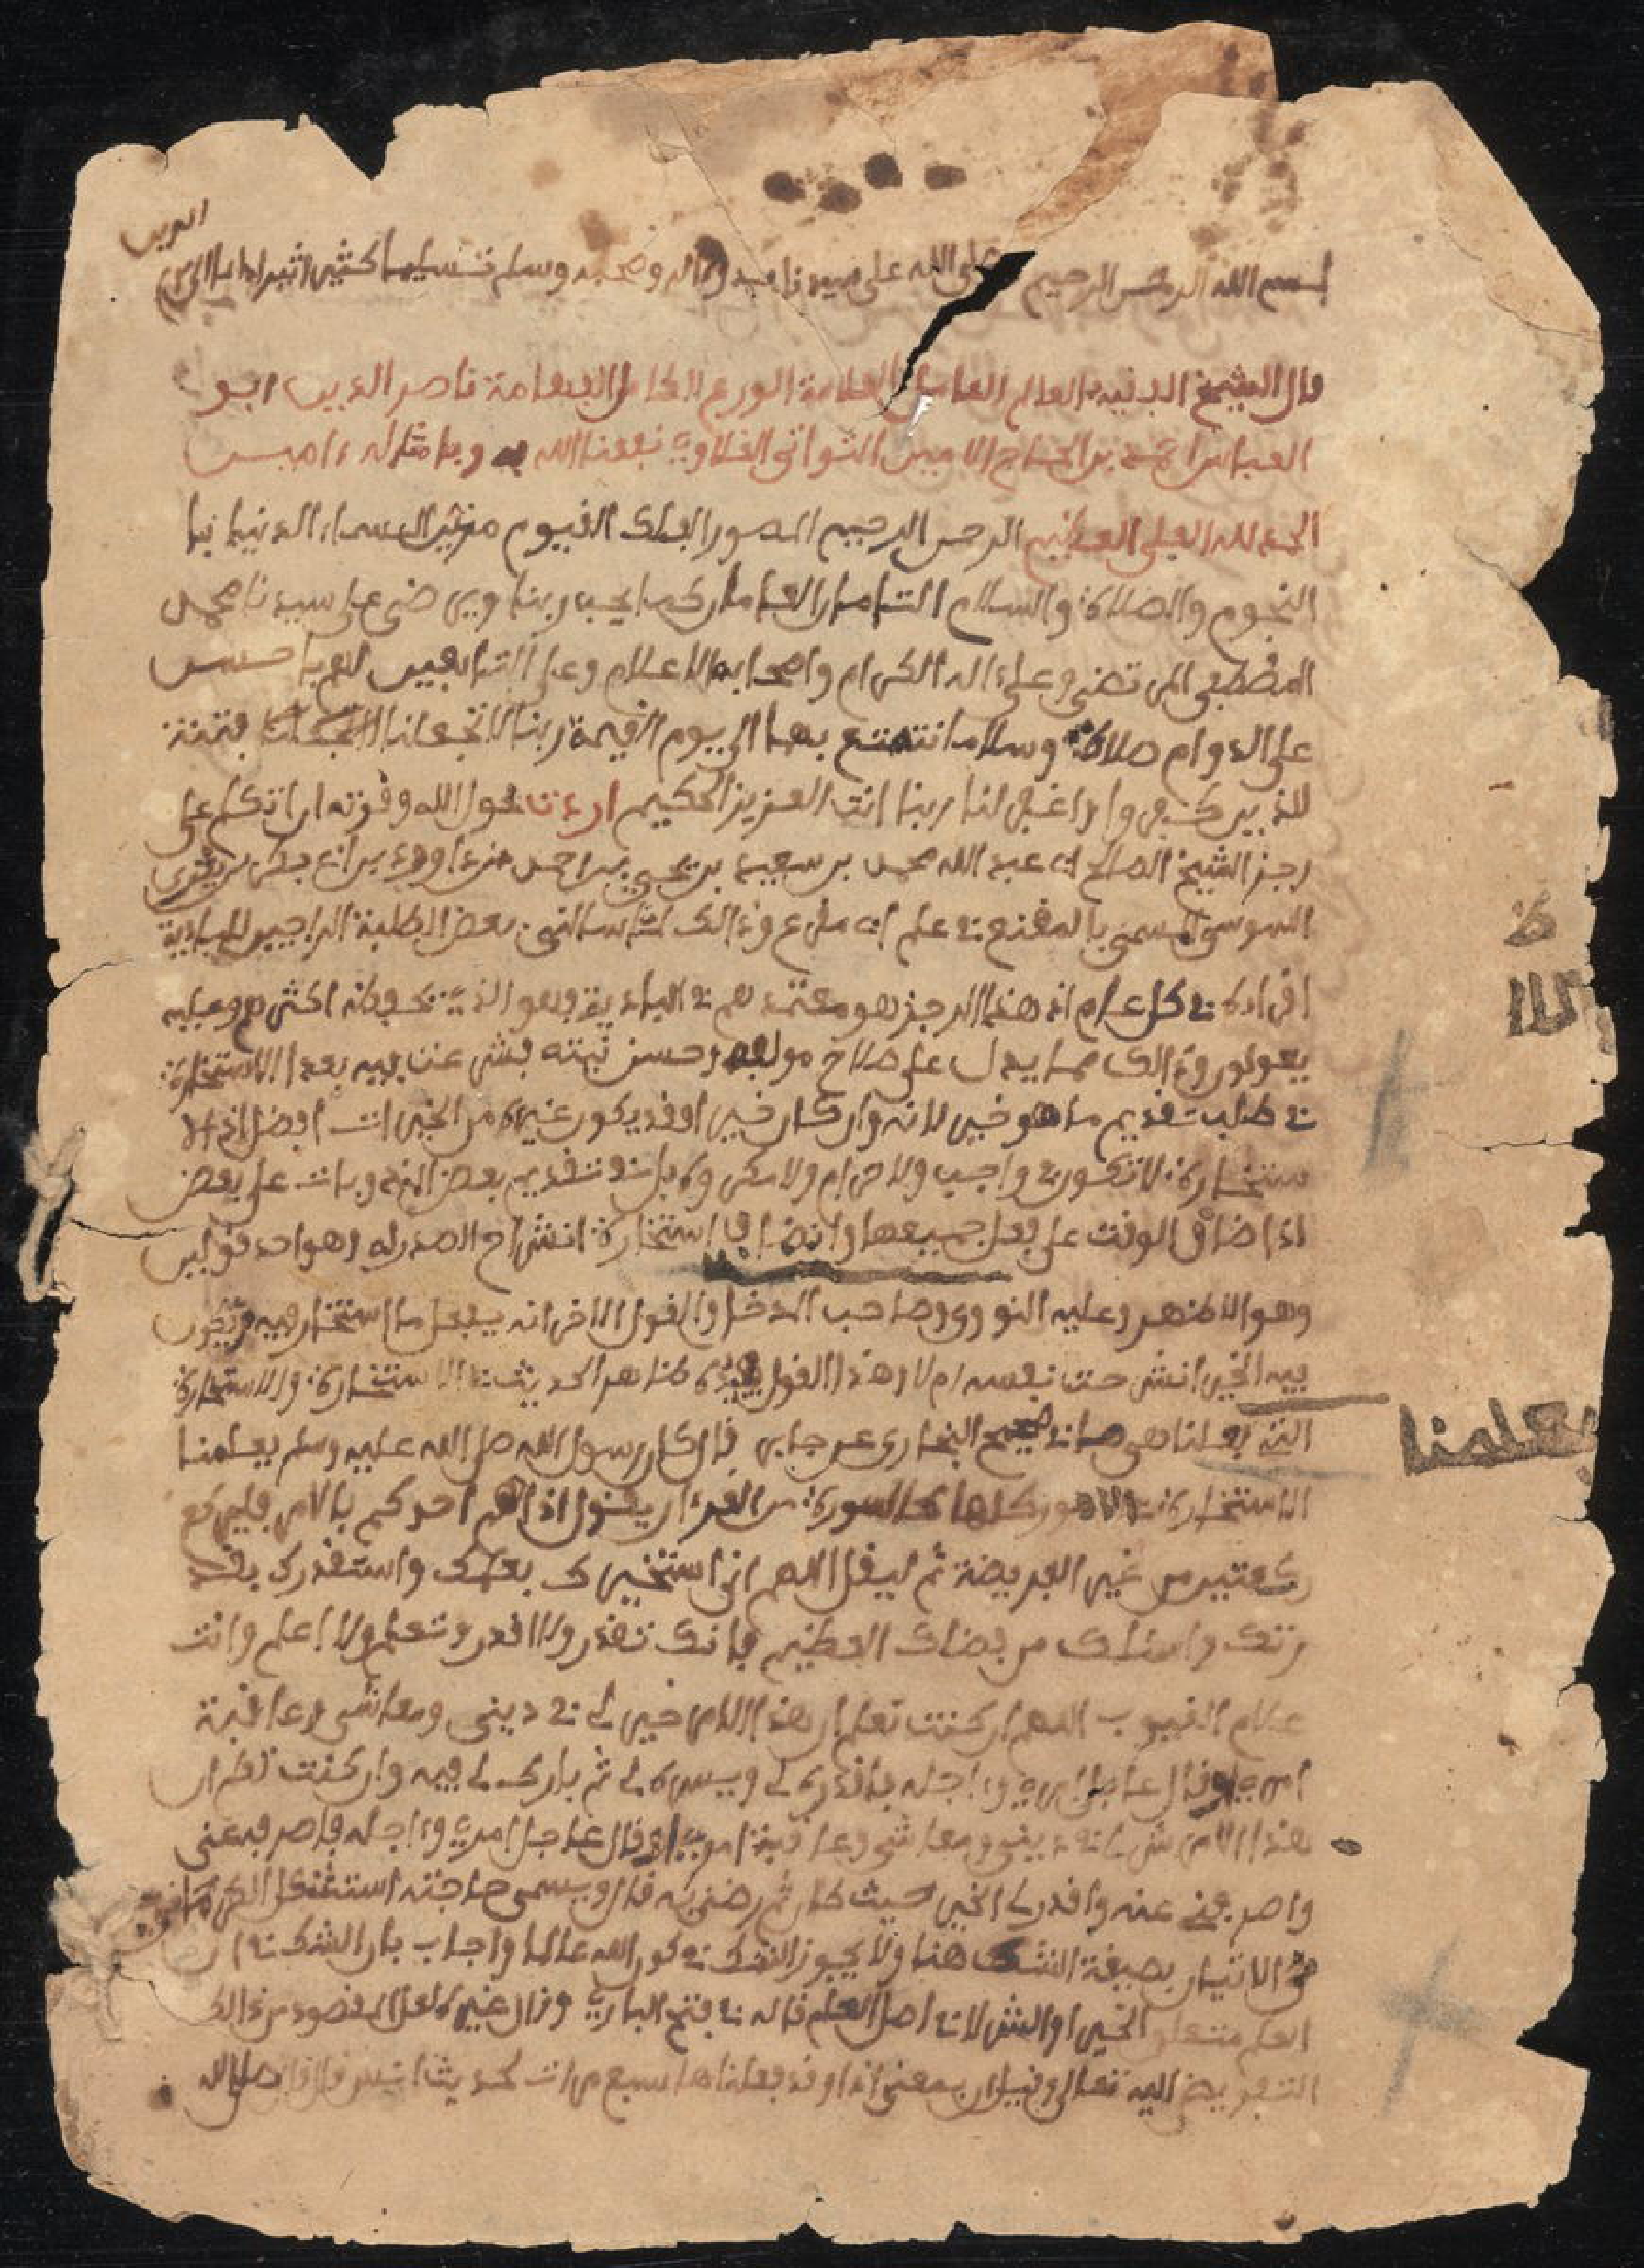 الدين
بسم الله الرحمن الرحيم صلى الله على سيدنا محمد وءاله وصحبه وسلم تسليما كثيرا اثيرا الى يوم
قال الشيخ الفقيه العالم العامل العلامة الورع الكامل الفهامة ناصر الدين ابو
العباس احمد بن الحاج الامين التواتي الغلاوي نفعنا الله به وبامثاله ءامين
الحمد لله العلي العظيم الرحمن الرحيم المصور الملك القيوم مزين السماء الدنيا با
النجوم والصلاة والسلام التامان العامان كما يحب ربنا ويرضى على سيدنا محمد
المصطفى المرتضى وعلى ءاله الكرام واصحابه الاعلام وعلى التابعين لهم باحسن
على الدوام صلاة وسلاما نتمتع بهما الى يوم القيمة ربنا لا تجعلنا فتنة
للذين كفروا واغفر لنا ربنا انت العزيز الحكيم اردت بحول الله وقوته ان اتكلم على
رجز الشيخ الصالح ابي عبد الله محمد بن سعيد بن يحيى بن احمد بن داوود بن ابي بكر بن يعزى
السوسي المسمى بالمقنع في علم ابي مقرع وذالك لما سالني بعض الطلبة الراجين للبادية
اقراءه في كل عام اذ هذا الرجز هو معتمد هم في البادية وهو الذي يحفظه اكثرهم وعليه
يعولون وذالك مما يدل على صلاح مولفه وحسن نيته فشرعت فيه بعد الاستخارة
في طلب تقديم ما هو خير لانه وان كان خيرا وقد يكون غيره من الخيرات افضل اذ الا
ستخارة لا تكون في واجب ولا حرام ولا مكروه بل في تقديم بعض المندوبات على بعض
اذا ضاق الوقت على فعل جميعها وانظر في استخارة انشراح الصدر له وهو احد قولين
وهو الاظهر وعليه النووي وصاحب المدخل والقول الاخر انه يفعل ما استخار فيه ويكون
فيه الخير انشرحت نفسه ام لا وهذا القول ظاهر احديث الاستخارة والاستخارة
التي فعلنا هي ما في صحيح البخاري عن جابر قال كان رسول الله صلى الله عليه وسلم يعلمنا
الاستخارة في الامور كلها كالسورة من القرءان يقول اذا هم احدكم بالامر فليركع
ركعتين من غير الفريضة ثم ليقل اللهم اني استخيرك بعلمك واستقدرك بقد
رتك واسئلك من فضلك العظيم فانك تقدر ولا اقدر وتعلم ولا اعلم وانت
علام الغيوب اللهم ان كنت تعلم ان هذا الامر خير لي في ديني ومعاشي وعاقبة
امري او قال عاجل امري وءاجله فاقدره لي ويسره لي ثم بارك لي فيه وان كنت تعلم ان
هذا الامر شر لي في ديني ومعاشي وعاقبة امري او قال عاجل امري وءاجله فاصرفه عني
واصرفني عنه واقدر لي الخير حيث كان ثم رضني به قال ويسمي حاجته استشكل الكرماني
الاتيان بصيغة الشك هنا ولا يجوز الشك في كون الله عالما واجاب بان الشك في ان
العلم متعلق بالخير او الشر لا في اصل العلم قاله في فتح الباري وقال غيره لعل المقصود من ذالك
التفويض اليه تعالى وقيل ان بمعنى اذا وقد فعلناها سبع مرات لحديث انس قال قال صلى الله
يعلمنا